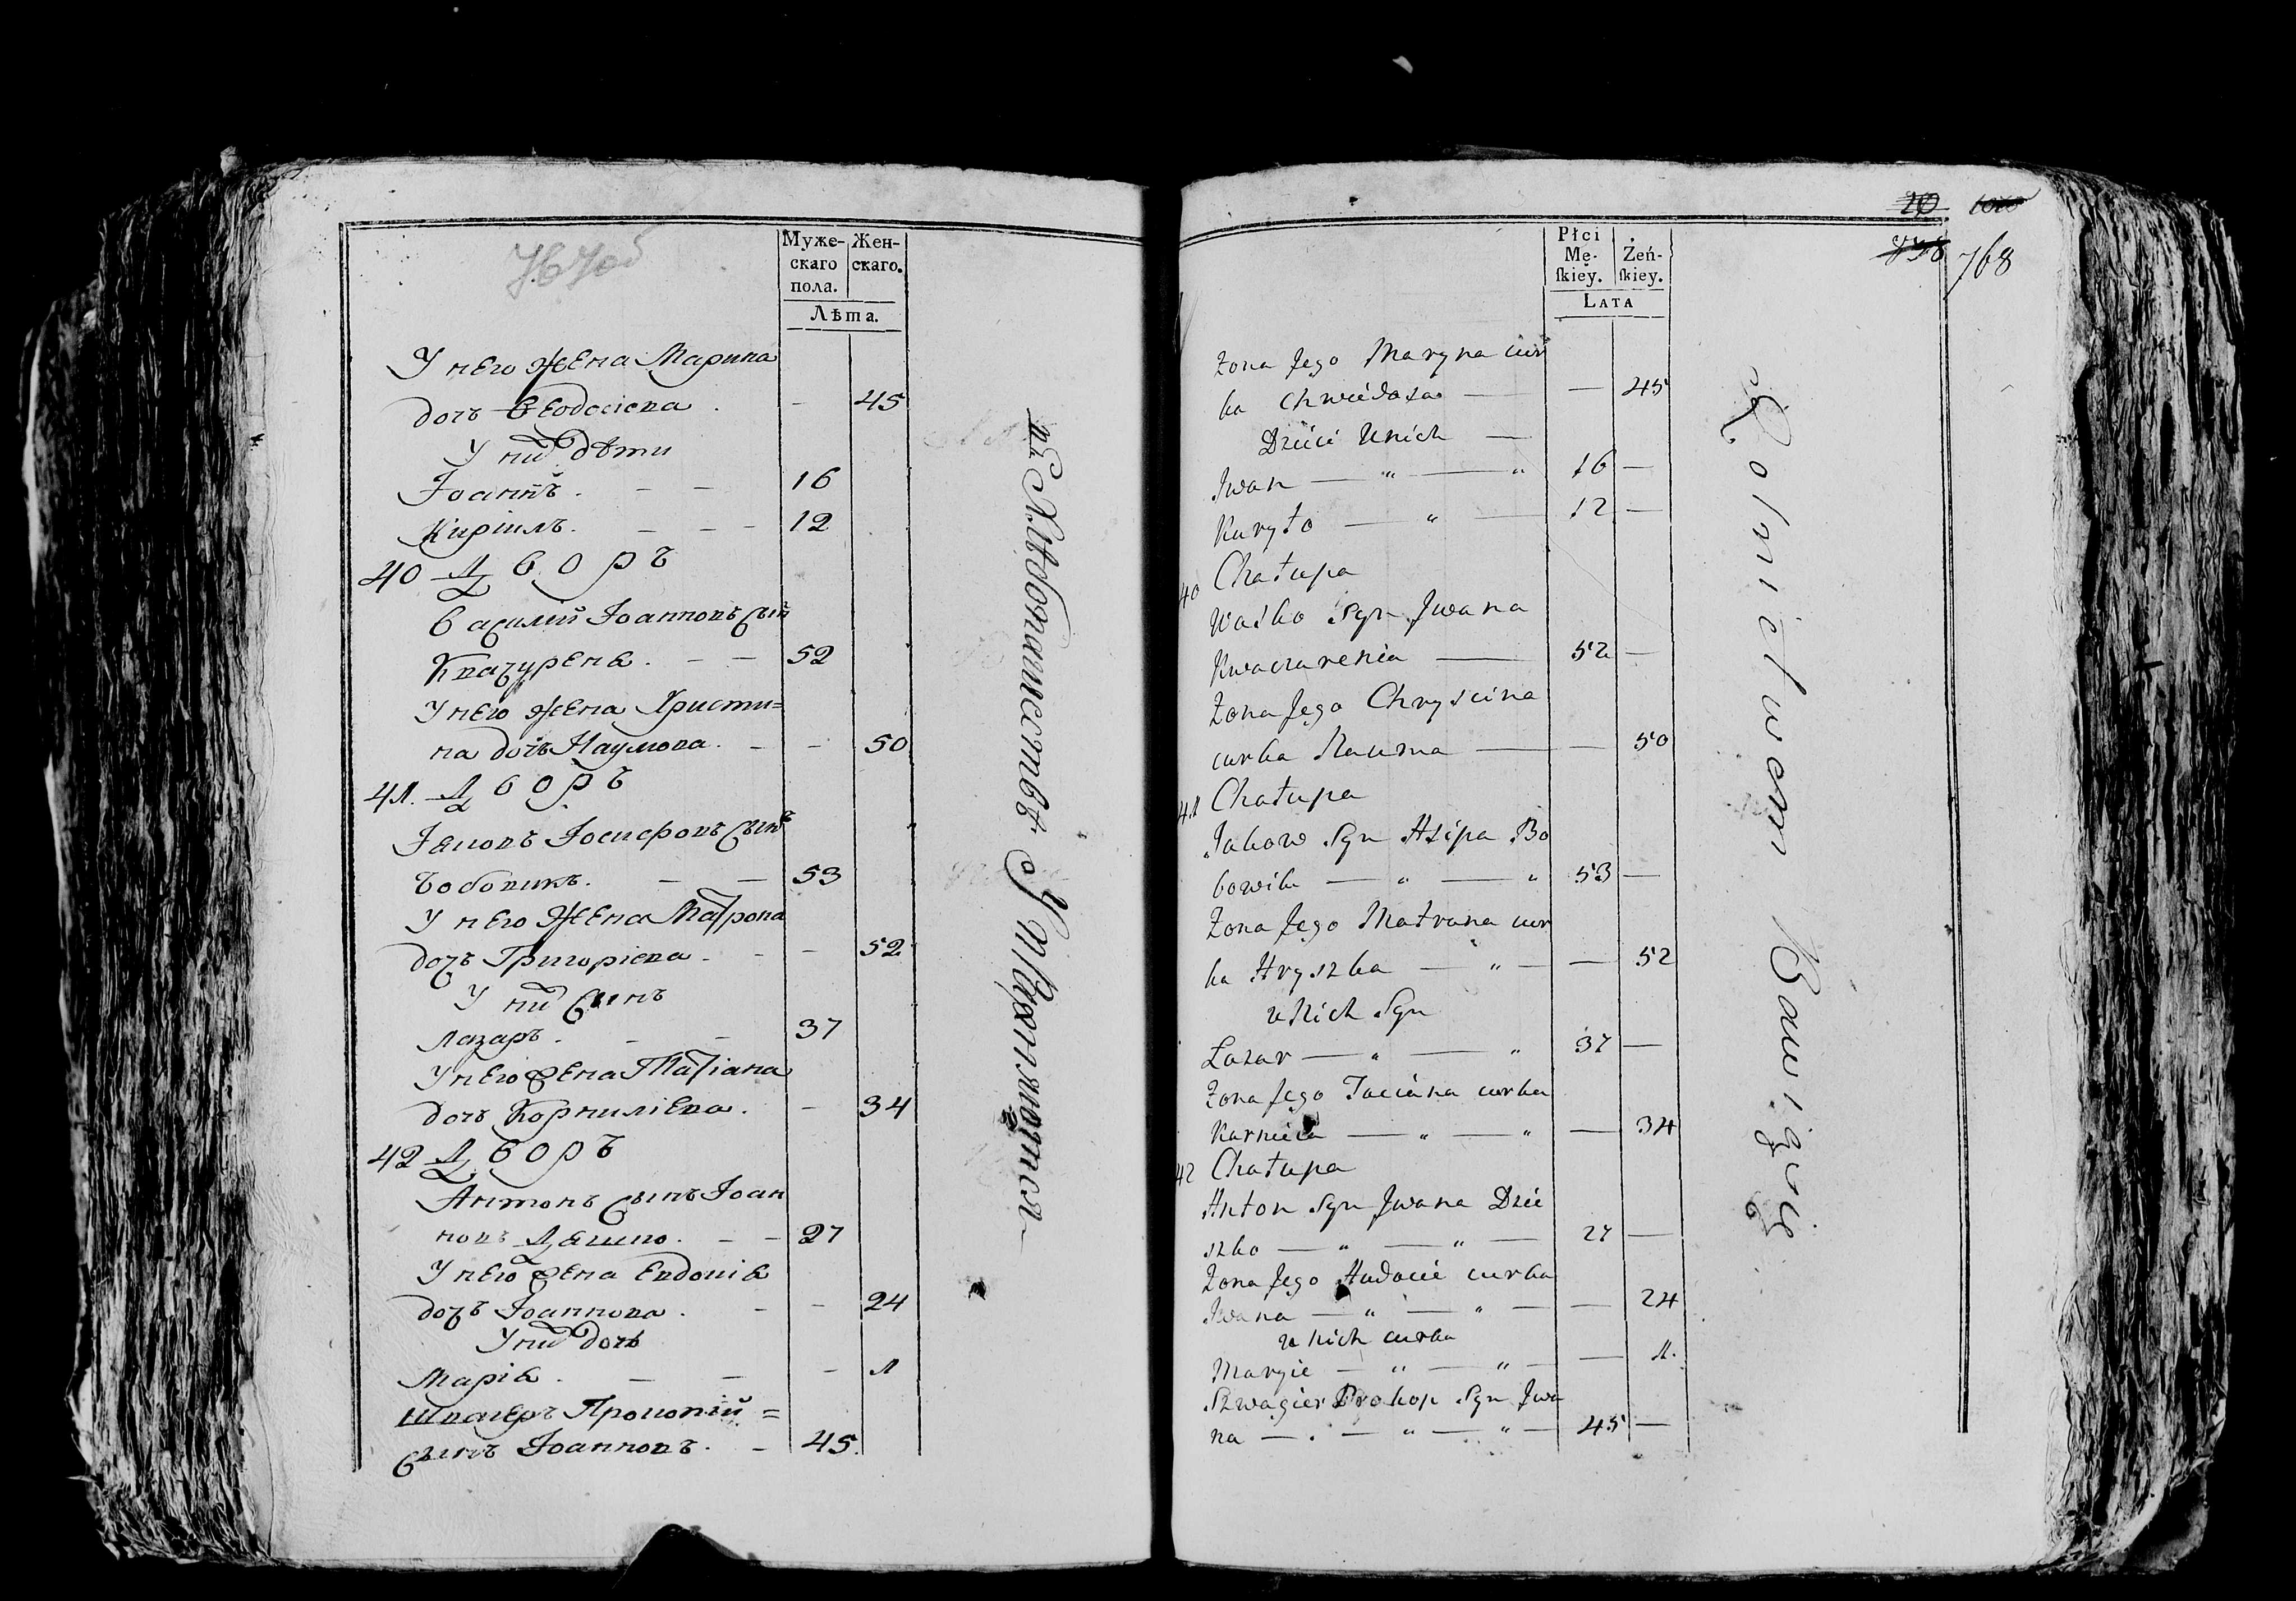 767об
Муже-
скаго
пола.
Жен-
скаго.
Лѣта.
У него жена Марина
дочь Ѳеодосіева . - 45
У них дѣти
Іоаннъ . - - 16
Кирiилъ. - - - 12
40 Дворъ
Василій Іоанновъ сын
Квачуреня . - - 52
У него жена Христи=
на дочь Наумова . - - 50
41. Дворъ
Іаковъ Іосифовъ сынъ
Бобовикъ. - - 53
У него жена Матрона
дочь Григоріева . - - 52
У них сынъ
Лазаръ . - - 37
У него жена Татіана
дочь Корниліева . - 34
42 Дворъ
Антонъ сынъ Іоан
новъ Дяшко . - - 27
У него жена Евдокія
дочь Іоаннова . - - 24
У них дочь
Марія . - - - 1
Швагеръ Прокопій =
сынъ Іоанновъ . - 45.
въ Хлѣбопашествѣ Упражняются
20
768
Płci
Mę-
ſkiey.
Żeń-
ſkiey.
Lata
Zona Jego Maryna cur
ka Chwiedosa — — 45
Dzieci Unich —
Iwan — " — " 16 —
Kuryło — " — 12 —
40 Chałupa
Wasko Syn Jwana
Kwaczarenia — 52 —
Zona Jego Chryscina
curka Nauma — — 50
41 Chałupa
Jakow Syn Asipa Bo
bowik — " — " 53 —
Zona Jego Matruna cur
ka Hryszka — " — — 52
u Nich Syn
Lazar — " — " 37 —
Zona Jego Taciana curka
Karnieia — " — " — 34
42 Chałupa
Anton Syn Jwana Dzie
szko — " — " — 27 —
Zona Jego Audocie curka
Jwana — " — " — — 24
u Nich curka
Maryie — " — " — — 1.
Szwagier Prokop Syn Jwa
na — . — " — " — 45 —
Rolnictwem Bawią się